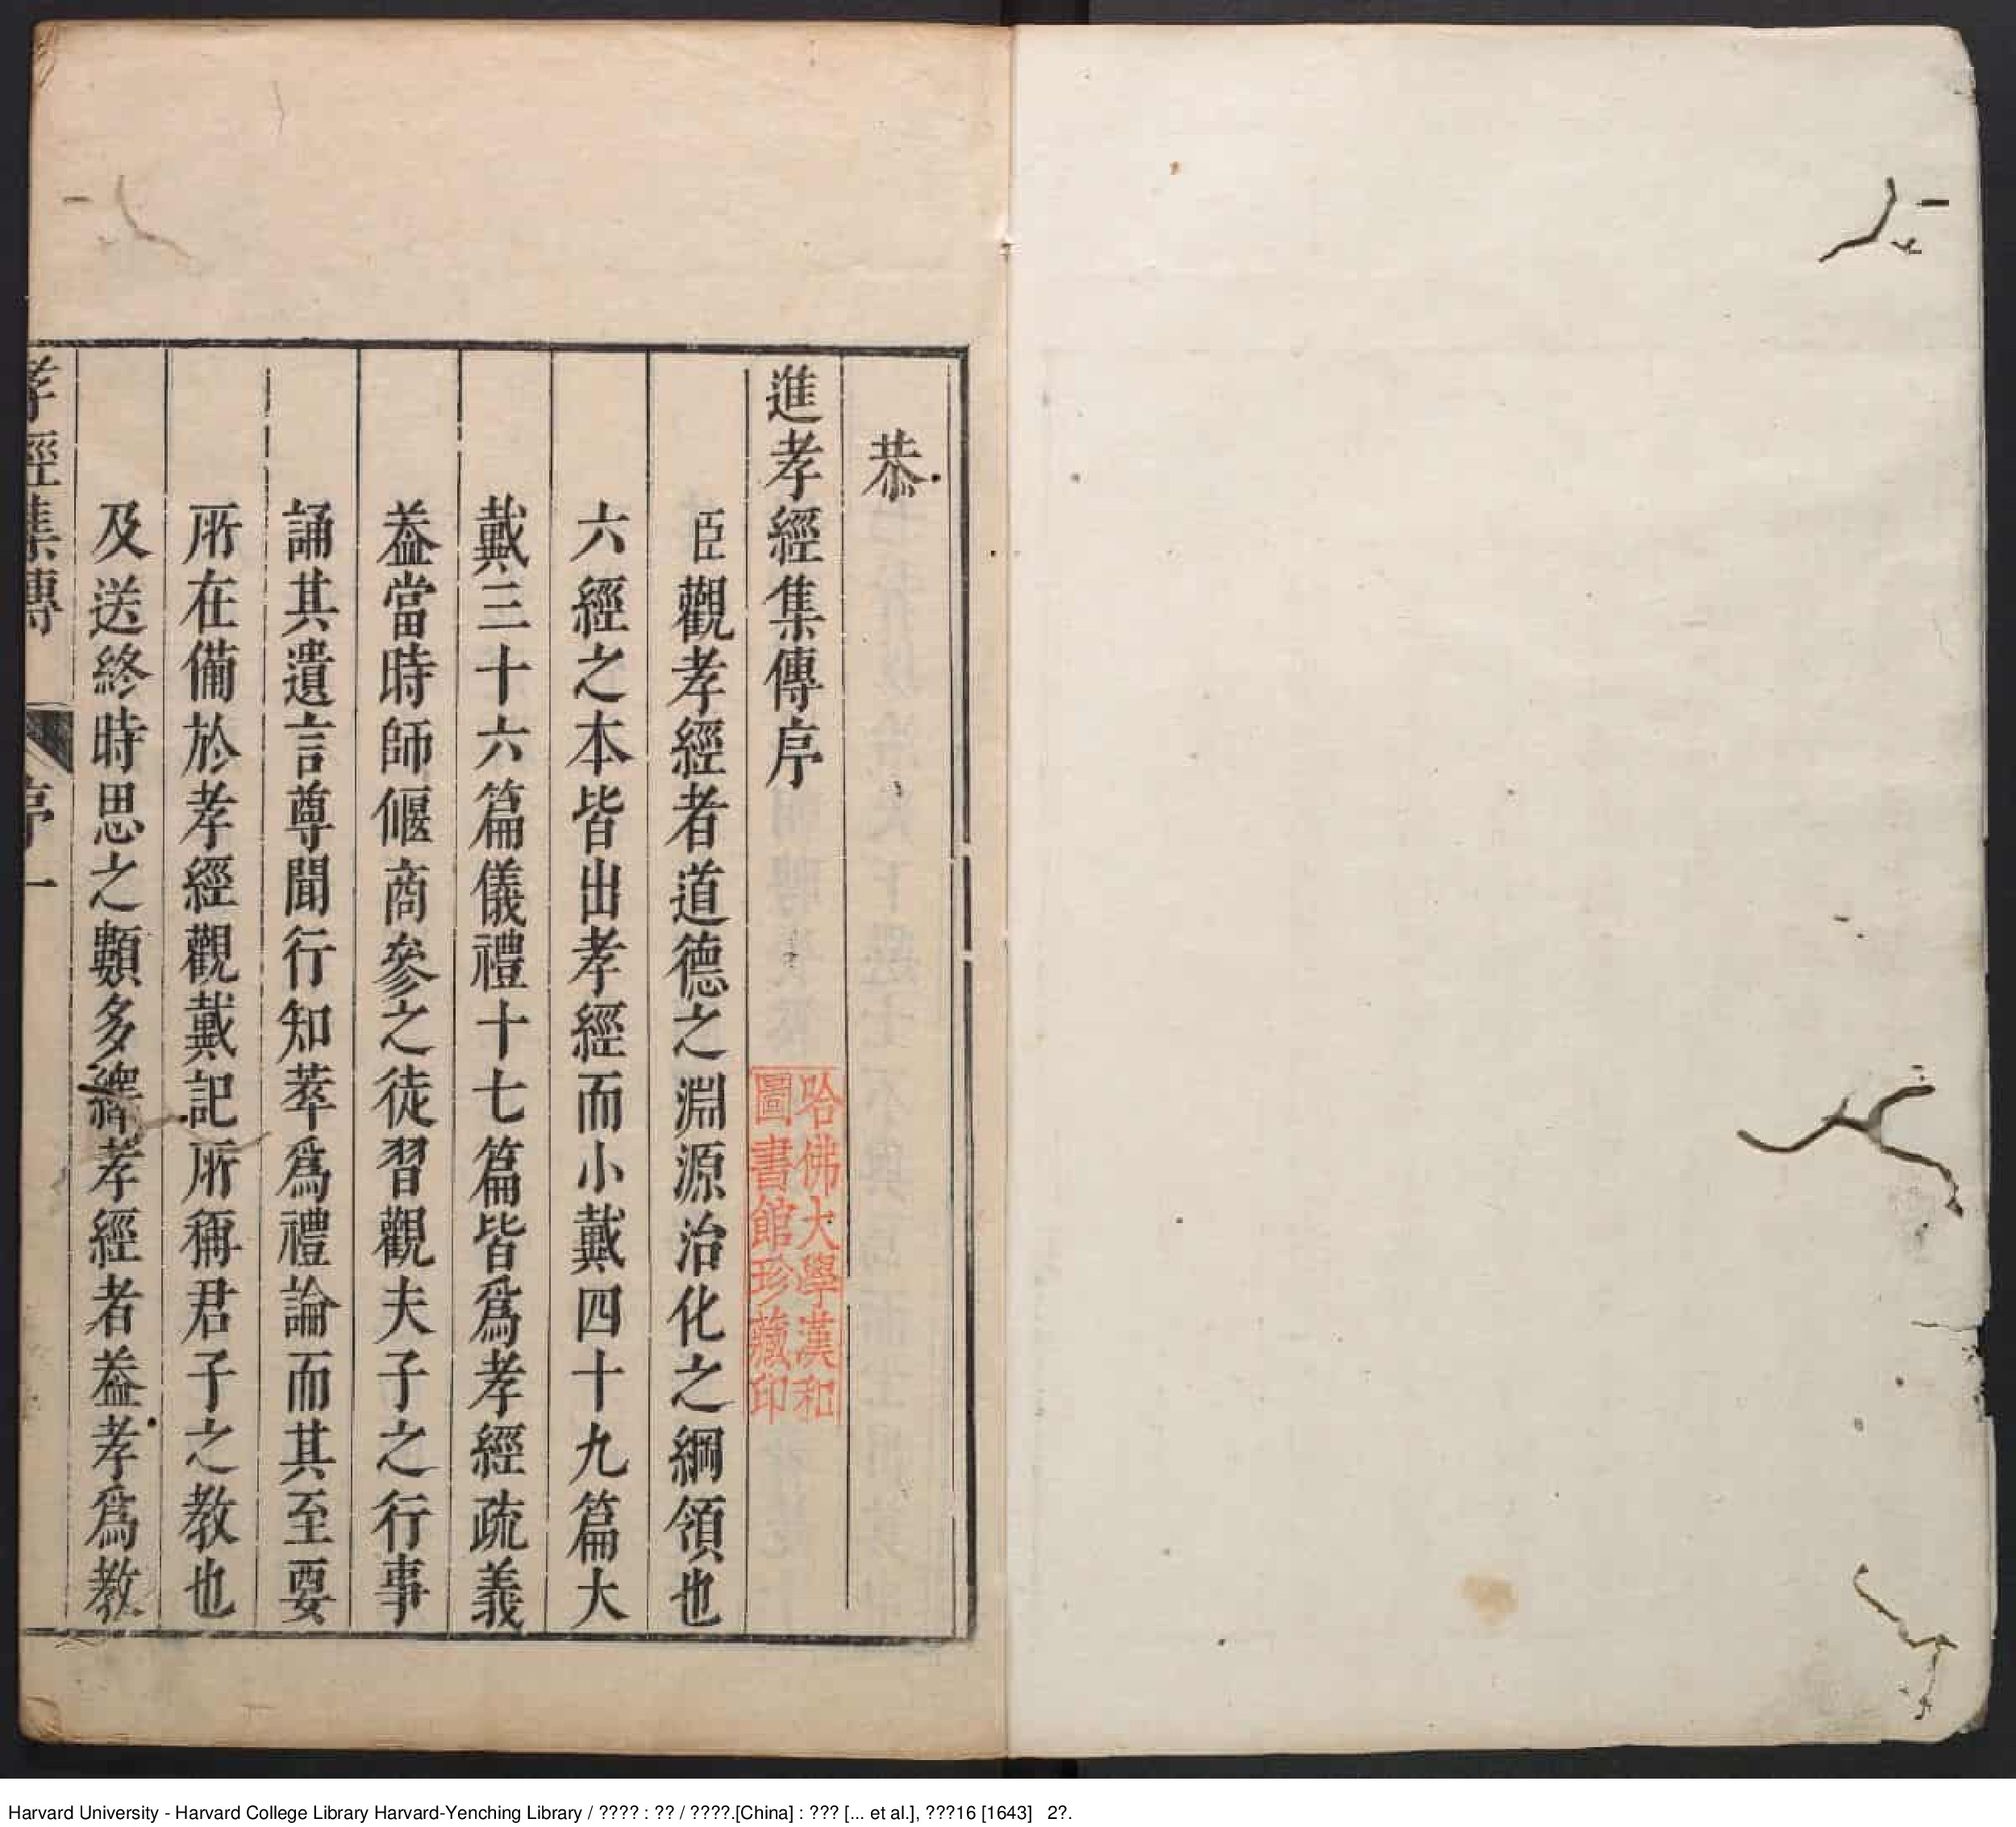 恭
進孝經集傳序
臣觀孝經者道德之淵源治化之綱領也
六經之本皆出孝經而小戴四十九篇大
戴三十六篇儀禮十七篇皆爲孝經疏義
葢當時師偃商參之徒習觀夫子之行事
誦其遺言尊聞行知萃爲禮論而其至要
所在備於孝經觀戴記所稱君子之教也
及送終時思之類多繹孝經者葢孝爲教
孝經集傳
序一
哈佛大學漢和
圖書館珍藏印
Harvard University - Harvard College Library Harvard-Yenching Library / ???? : ?? / ????.[China] : ??? [... et al.], ???16 [1643] 2?.